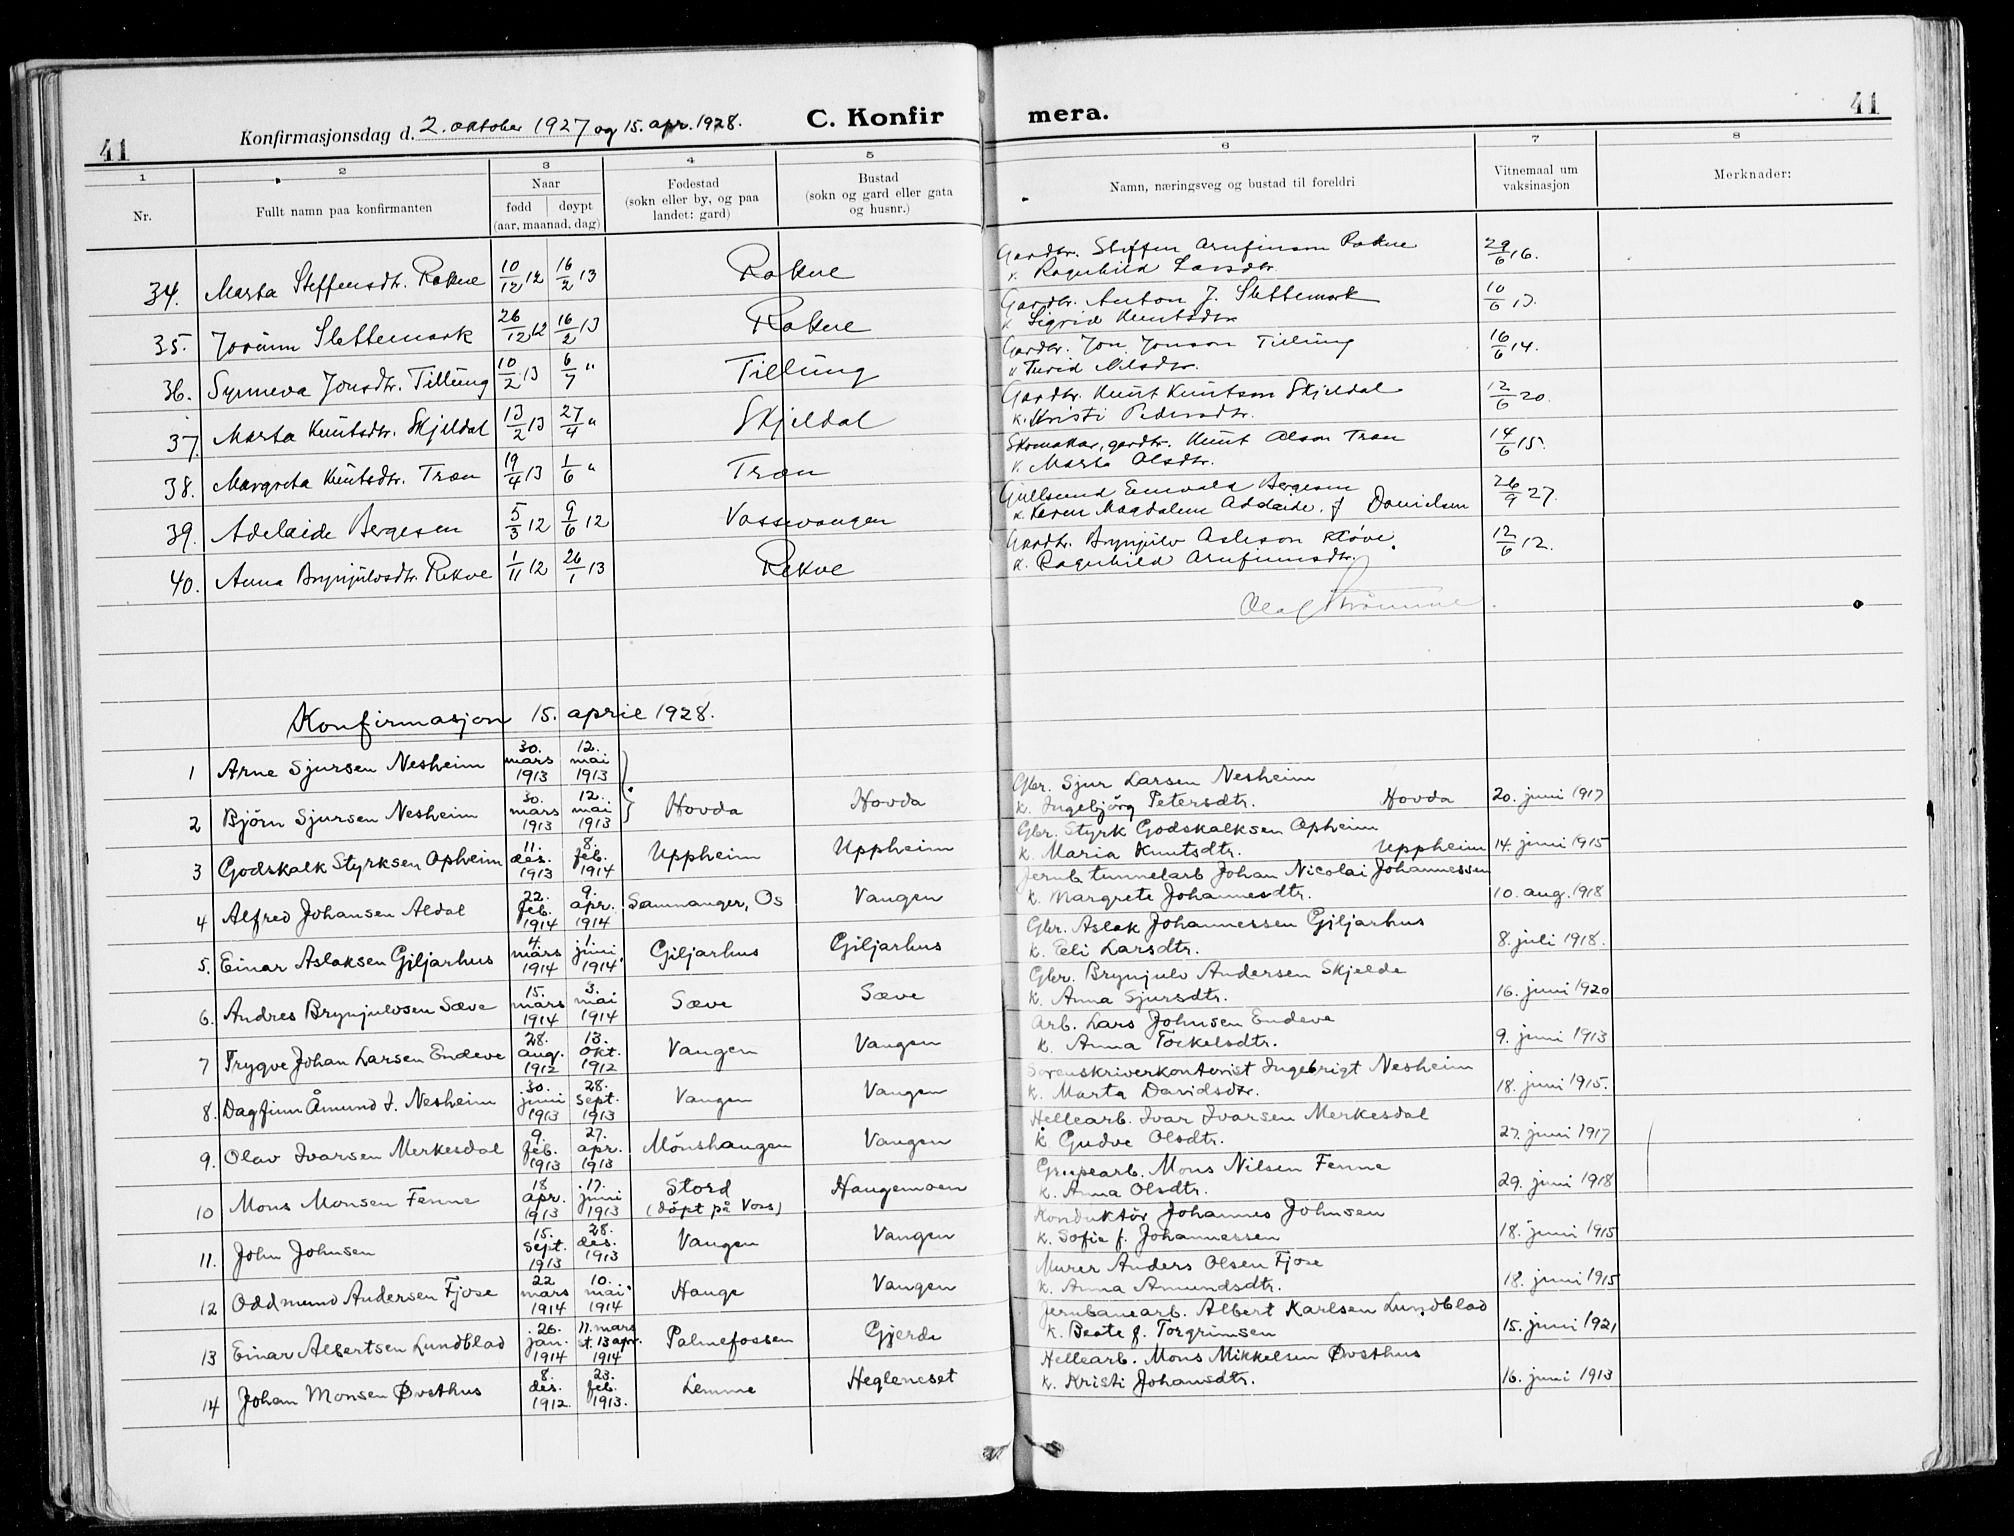 41 Konfirmasjonsdag d. 2. oktober 1927 og 15. apr. 1928. C. Konfirmera. 41
1 2 3 4 5 6 7 8
Nr. Fullt namn paa konfirmanten Naar fødd døypt (aar, maanad, dag) Fødestad (sokn eller by, og paa landet: gard) Bustad (sokn og gard eller gata og husnr.) Namn, næringsveg og bustad til foreldri Vitnemaal um vaksinasjon Merknader:
34. Marta Steffensdtr. Rokne 10/12 12 16/2 13 Rokne Gardbr. Steffen Arnfinson Rokne
k. Ragnhild Larsdtr. 29/6 16.
35. Jorunn Slettemark 26/12 12 16/2 13 Rokne Gardbr. Anton J. Slettemark
k. Sigrid Knutsdtr. 10/6 13.
36. Synneva Jonsdtr. Tillung 10/2 13 6/7 " Tillung Gardbr. Jon Jonson Tillung
k. Turid Nilsdtr. 16/6 14.
37. Marta Knutsdtr. Skjeldal 13/2 13 27/4 " Skjeldal Gardbr. Knut Knutson Skjeldal
k. Kristi Pedersdtr. 12/6 20.
38. Margreta Knutsdtr. Træn 19/4 13 1/6 " Træn Skomakar, gardbr. Knut Olson Træn
k. Marta Olsdtr. 14/6 15.
39. Adelaide Bergesen 5/3 12 9/6 12 Vossevangen Gullsmed Bergesen
k. Karen Magdalene Adelaide f. Danielsen 26/9 27.
40. Anna Brynjulvsdtr. Rekve 1/11 12 26/1 13 Rekve Gardbr. Brynjulv Asleson Støve.
k. Ragnhild Arnfinnsdtr. 12/6 12.
Olaf
Konfirmasjon 15. april 1928.
1 Arne Sjursen Nesheim 30. mars 1913 12. mai 1913
2 Björn Sjursen Nesheim 30. mars 1913 12. mai 1913 Hovda Hovda Gbr. Sjur Larsen Nesheim
k. Ingebjörg Petersdtr. Hovda 20. juni 1917
3 Godskalk Styrksen Opheim 11. des. 1913 8. feb. 1914 Uppheim Uppheim Gbr. Styrk Godskalksen Opheim
k. Maria Knutsdtr. Uppheim 14. juni 1915
4 Alfred Johansen Aldal 22. feb. 1914 9. apr. 1914 Samnanger, Os Vangen Jernb. tunnelarb Johan Nicolai Johannessen
k. Margrete Johannesdtr. 10. aug. 1918
5. Einar Aslaksen Giljarhus 4. mars 1914 1. juni 1914 Giljarhus Giljarhus Gbr. Aslak Johannessen Giljarhus
k. Eli Larsdtr. 8. juli 1918.
6. Andres Brynjulvsen Sæve 15. mars 1914 3. mai 1914 Sæve Sæve Gbr. Brynjulv Andersen Skjelde
k. Anna Sjursdtr. 16. juni 1920
7 Trygve Johan Larsen Endeve 28. aug. 1912 13. okt. 1912 Vangen Vangen Arb. Lars Johnsen Endeve
k. Anna Torkelsdtr. 9. juni 1913
8. Dagfinn Åmund I. Nesheim 30. juni 1913 28. sept. 1913 Vangen Vangen Sorenskriverkontorist Ingebrigt Nesheim
k. Marta Davidsdtr. 18. juni 1915.
9. Olav Ivarsen Merkesdal 9. feb. 1913 27. apr. 1913 Mönshaugen Vangen Hellearb. Ivar Ivarsen Merkesdal
k. Gudve Olsdtr. 27. juni 1917
10 Mons Monsen Fenne 18 apr. 1913 17. juni 1913 Stord (döpt på Voss) Haugemoen Mons Nilsen Fenne
k. Anna Olsdtr. 29. juni 1918
11. John Johnsen 15. sept. 1913 28. des. 1913 Vangen Vangen Konduktör Johannes Johnsen
k. Sofie f. Johannessen 18. juni 1915
12 Oddmund Andersen Fjose 22 mars 1914 10. mai 1914 Hauge Vangen Murer Anders Olsen Fjose
k. Anna Amundsdtr. 18. juni 1915
13 Einar Albertsen Lundblad 26. jan. 1914 11. mars st. 13 apr. 1914 Palmefossen Gjerde Jernbanearb. Albert Karlsen Lundblad
k. Beate f. Torgrimsen 15. juni 1921
14 Johan Monsen Øvsthus 8. des. 1912. 23. feb. 1913. Lemme Hegleneset Hellearb. Mons Mikkelsen Øvsthus
k. Kristi Johansdtr. 16. juni 1913